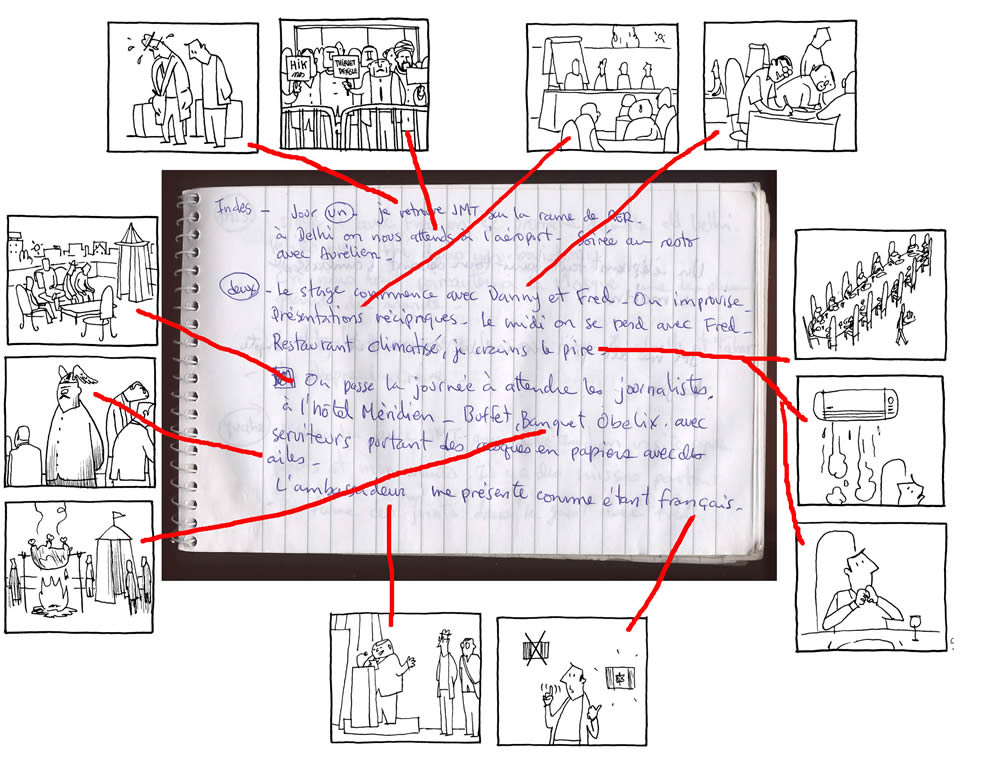 Hik
Indes - Jour un - je retrouve JMT sur la rame de RER.
à Delhi on nous attends à l'aéroport - Soirée au resto
avec Aurélien -
deux - Le stage commence avec Danny et Fred - On improvise -
Présentations réciproques - Le midi on se perd avec Fred -
Restaurant climatisé, je crains le pire -
On passe la journée à attendre les journalistes,
à l'hôtel Méridien - Buffet, Banquet Obelix. avec
serviteurs portant des casques en papiers avec des
ailes -
L'ambassadeur me présente comme étant français -